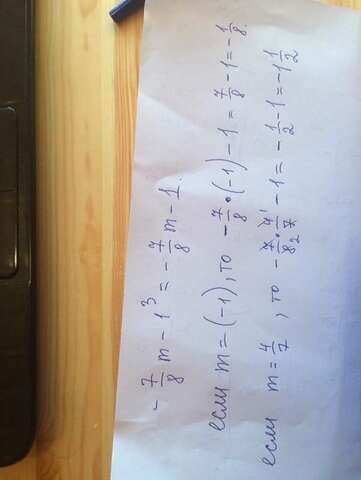 -7/8 m - 1³ = -7/8 m - 1.
если m = (-1), то -7/8 • (-1) - 1 = 7/8 - 1 = -1/8.
если m = 4/7, то -7/8₂ • 4¹/7 - 1 = -1/2 - 1 = -1 1/2